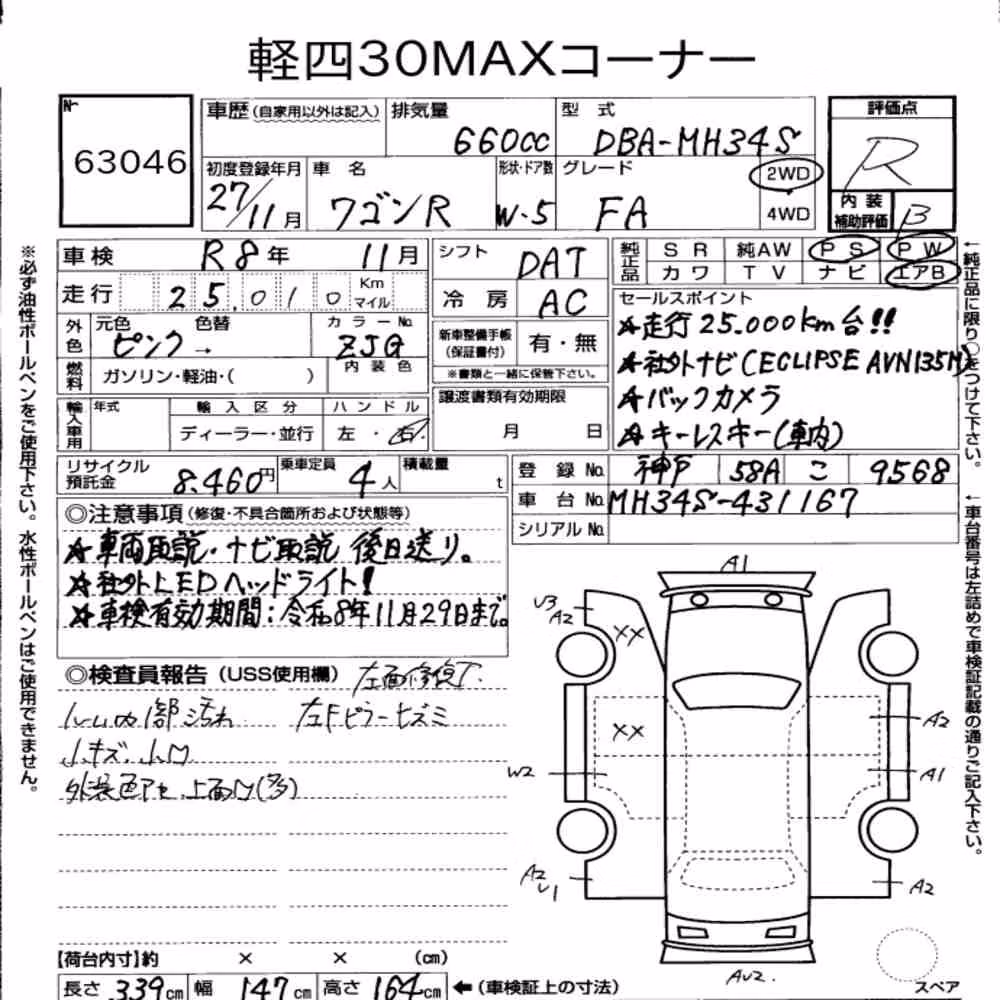 軽四30MAXコーナー
№ 63046
車歴(自家用以外は記入) 排気量 660cc 型式 DBA-MH34S 評価点 R
初度登録年月 27/11月 車名 ワゴンR 形状・ドア数 W-5 グレード FA 2WD 4WD 内装補助評価 B
車検 R8年 11月 シフト DAT 純正品 SR 純AW PS PW
カワ TV ナビ エアB
走行 25,010 Km マイル 冷房 AC セールスポイント
外色 元色 ピンク → 色替 カラーNo. ZJG 新車整備手帳(保証書付) 有・無 ★走行25.000km台!!
燃料 ガソリン・軽油・( ) 内装色 ※書類と一緒に保管下さい。 ★社外ナビ(ECLIPSE AVN135M)
輸入車用 年式 輸入区分 ハンドル 譲渡書類有効期限 ★バックカメラ
ディーラー・並行 左・右 月 日 ★キーレスキー(車内)
リサイクル預託金 8.460円 乗車定員 4人 積載量 t 登録No. 神戸 58A こ 9568
車台No. MH34S-431167
シリアルNo.
◎注意事項(修復・不具合箇所および状態等)
★車両取説・ナビ取説 後日送り。
★社外LEDヘッドライト!
★車検有効期間:令和8年11月29日まで。
◎検査員報告(USS使用欄) 左面修復了.
ルーム内部汚れ 左Fピラーヒズミ
小キズ.小凹
外装色アセ.上面凹(多)
A1
U3 A2
XX
XX
A2
W2
A1
A2 U1
A2
AU2.
スペア
【荷台内寸】約 × × (cm)
長さ 339cm 幅 147cm 高さ 164cm ←(車検証上の寸法)
※必ず油性ボールペンをご使用下さい。水性ボールペンはご使用できません。
←純正品に限り○をつけて下さい。
←車台番号は左詰めで車検証記載の通りご記入下さい。